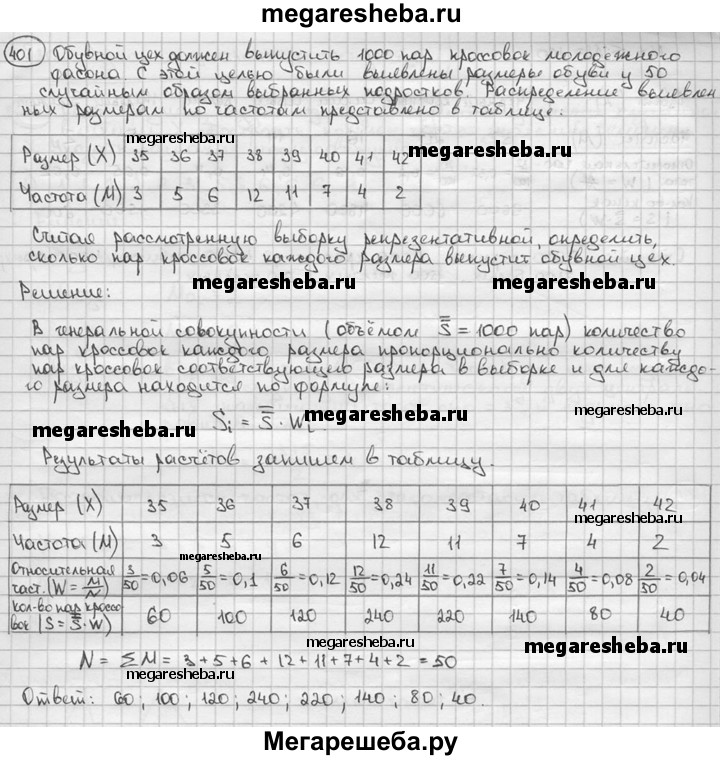 megaresheba.ru
401 Обувной цех должен выпустить 1000 пар кроссовок молодёжного
фасона С этой целью были выявлены размеры обуви у 50
случайным образом выбранных подростков. Распределение выявлен
ных размерам по частотам представлено в таблице:
megaresheba.ru
Размер (X) 35 36 37 38 39 40 41 42
megaresheba.ru
Частота (M) 3 5 6 12 11 7 4 2
Считая рассмотренную выборку репрезентативной, определить,
сколько пар кроссовок каждого размера выпустит обувной цех.
megaresheba.ru megaresheba.ru
Решение:
В генеральной совокупности (объёмом S̿ = 1000 пар) количество
пар кроссовок каждого размера пропорционально количеству
пар кроссовок соответствующего размера в выборке и для каждо-
го размера находится по формуле:
Si = S̿ · Wi
megaresheba.ru megaresheba.ru megaresheba.ru
Результаты расчётов запишем в таблицу.
Размер (X) 35 36 37 38 39 40 41 42
Частота (M) 3 5 6 12 11 7 4 2
megaresheba.ru megaresheba.ru
Относительная част. (W = M/N) 3/50=0,06 5/50=0,1 6/50=0,12 12/50=0,24 11/50=0,22 7/50=0,14 4/50=0,08 2/50=0,04
Кол-во пар кроссо вок (S = S̿·W) 60 100 120 240 220 140 80 40
megaresheba.ru megaresheba.ru
N = ΣM = 3+5+6+12+11+7+4+2=50
Ответ: 60; 100; 120; 240; 220; 140; 80; 40.
megaresheba.ru
Мегарешеба.ру